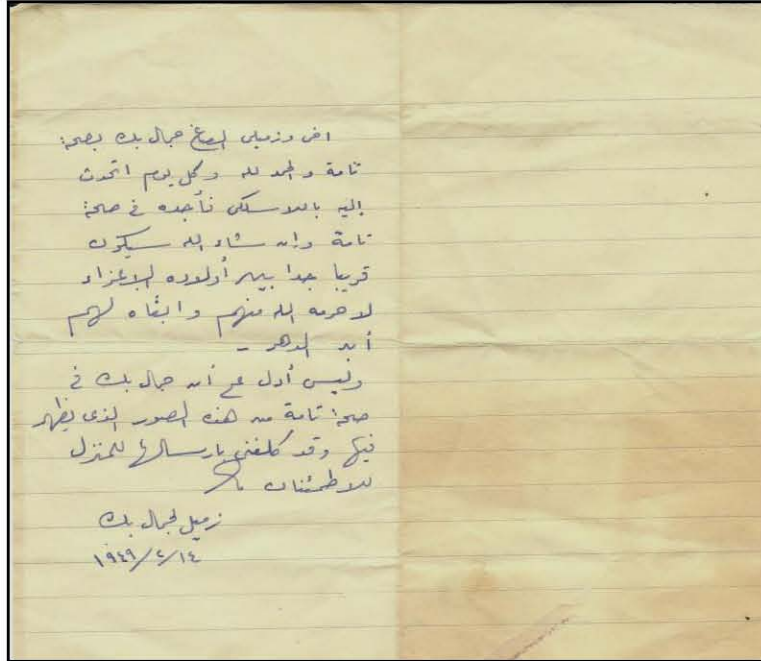 اخى وزميلى الصاغ جمال بك بصحة
تامة والحمد لله وكل يوم اتحدث
إليه باللاسلكى فأجده فى صحة
تامة وان شاء الله سيكون
قريبا جدا بين أولاده الاعزاء
لا حرمه الله منهم وابقاه لهم
أبد الدهر -
وليس أدل على أن جمال بك فى
صحة تامة من هذه الصور الذى يظهر
فيها وقد كلفنى بارسالها للمنزل
للاطمئنان
زميل لجمال بك
١٩٤٩/٢/١٤